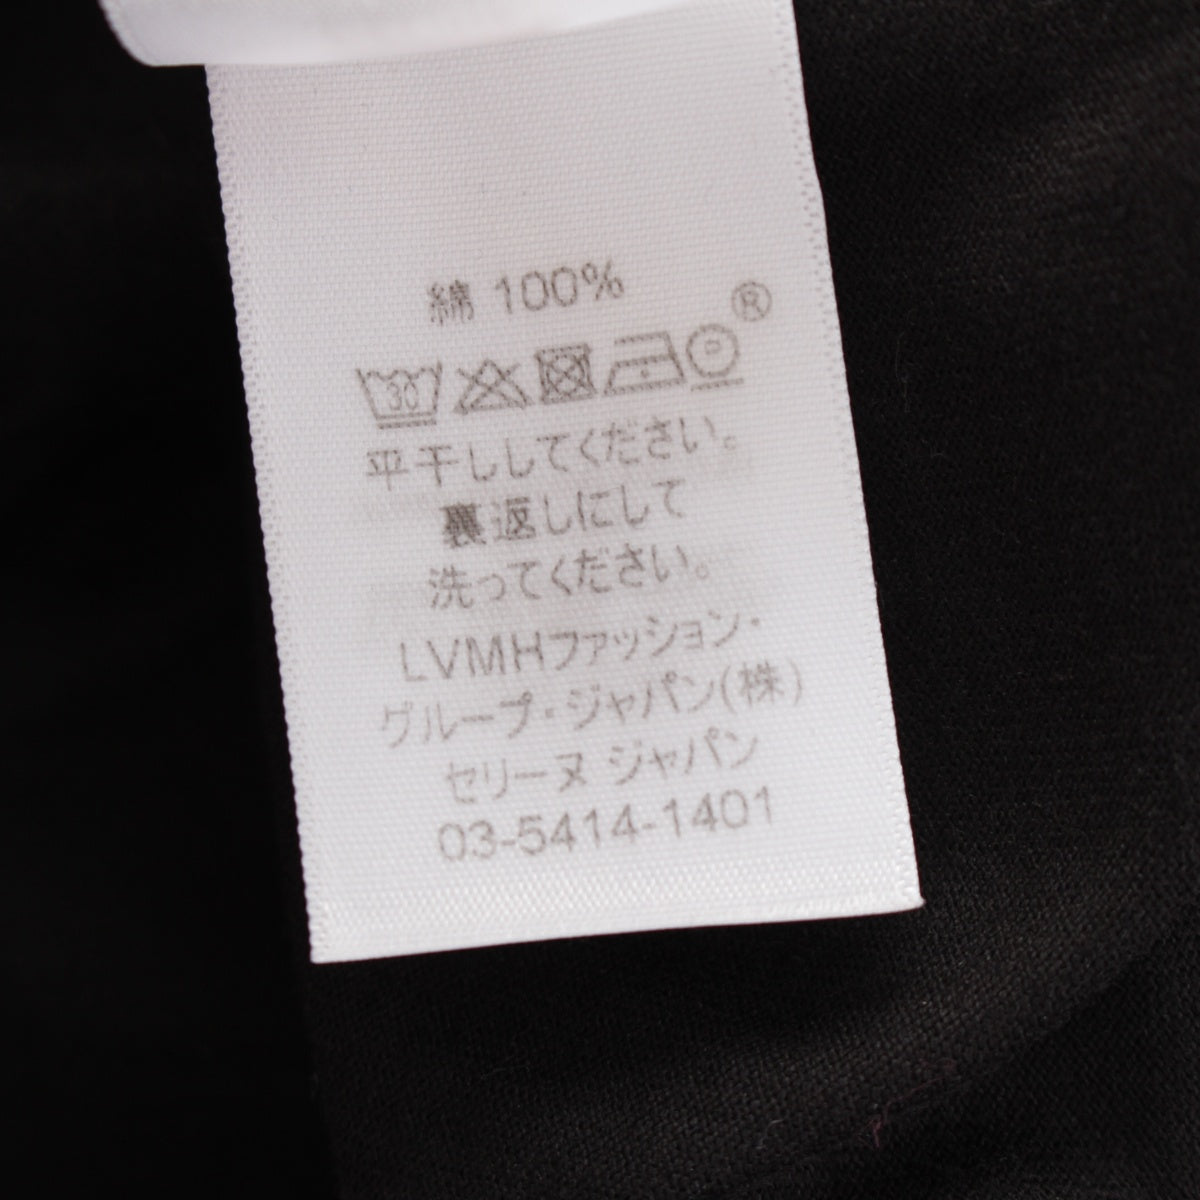 綿 100%
30 Ⓟ ®
平干ししてください。
裏返しにして
洗ってください。
LVMHファッション・
グループ・ジャパン(株)
セリーヌ ジャパン
03-5414-1401